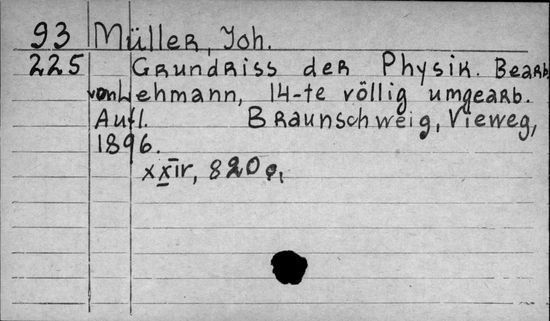 93 Müller, Joh.
225 Grundriss der Physik. Bearb.
von Lehmann, 14-te völlig umgearb.
Aufl. Braunschweig, Vieweg,
1896.
820